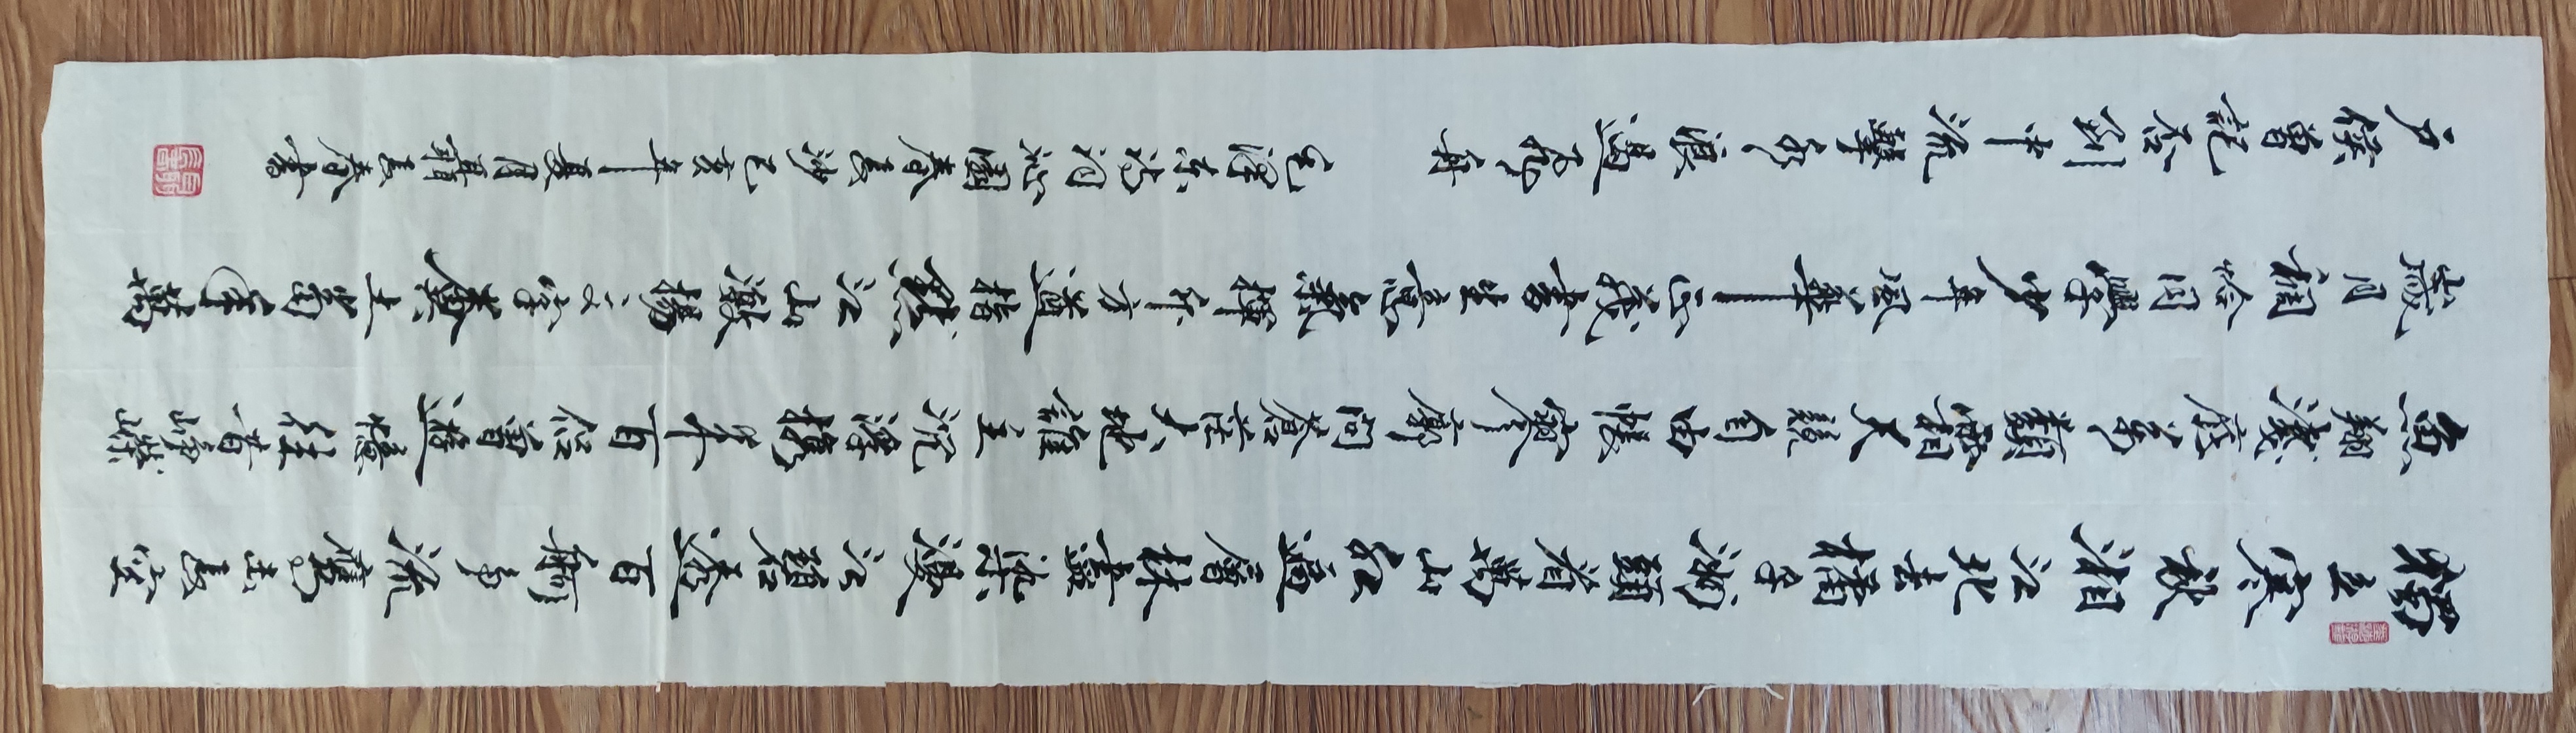 獨立寒秋湘江北去橘子洲頭看萬山紅遍層林盡染漫江碧透百舸争流鷹击長空
魚翔淺底万類霜天競自由悵寥廓問蒼茫大地誰主沉浮攜来百侣曾遊憶往昔峥嵘
歲月稠恰同學少年風華正茂書生意氣揮斥方遒指點江山激揚文字糞土當年萬
户侯曾記否到中流擊水浪遏飛舟 毛澤東詞沁園春長沙己亥年夏月長春書